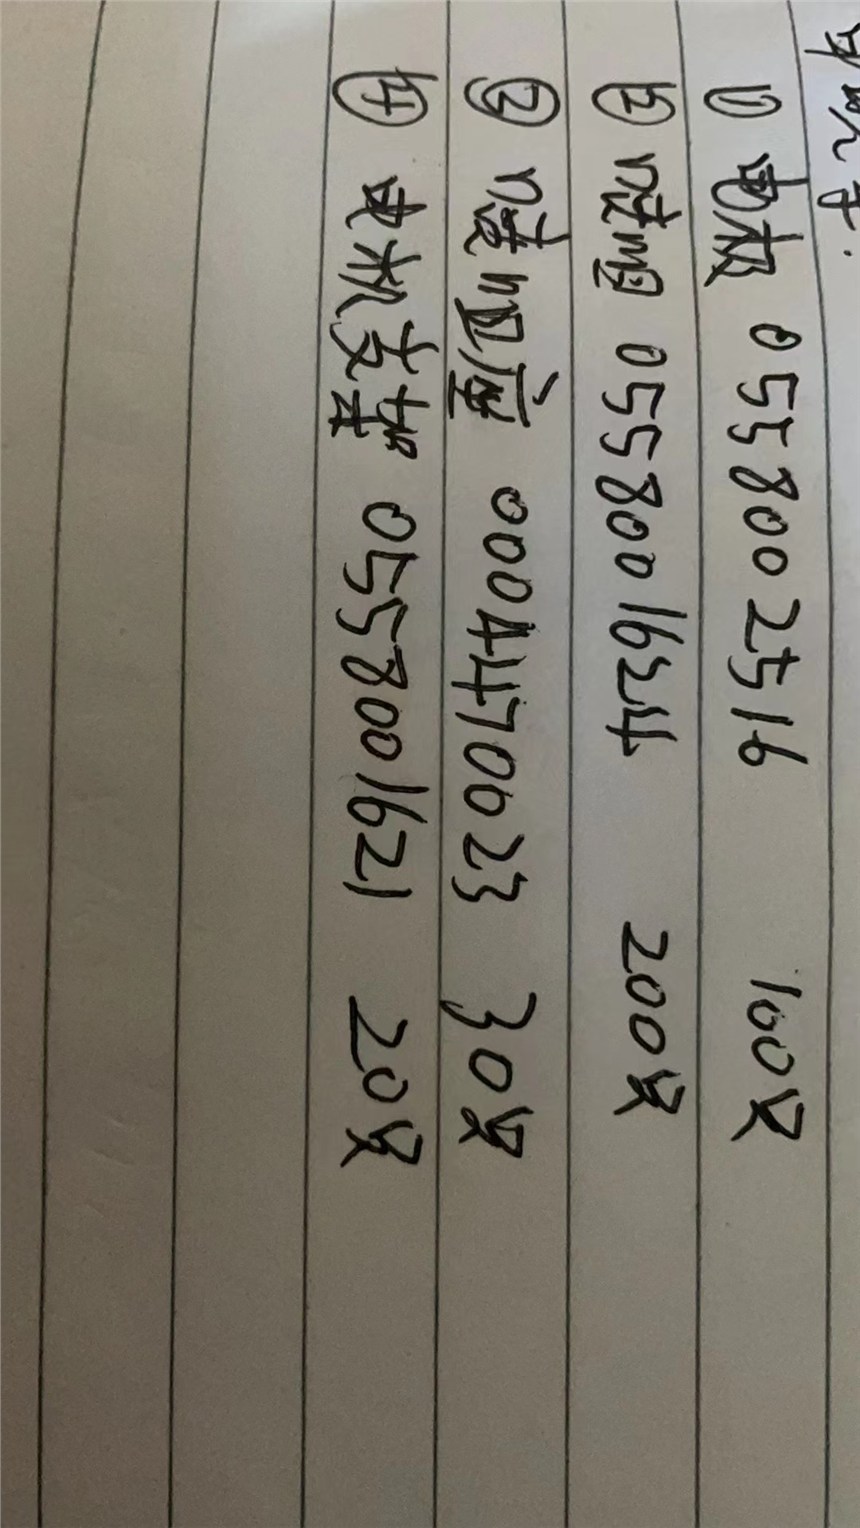 ① 电极 0558002516 100只
② 喷嘴 0558001624 200只
③ 喷嘴座 0004470023 30只
④ 电机支架 0558001621 20只